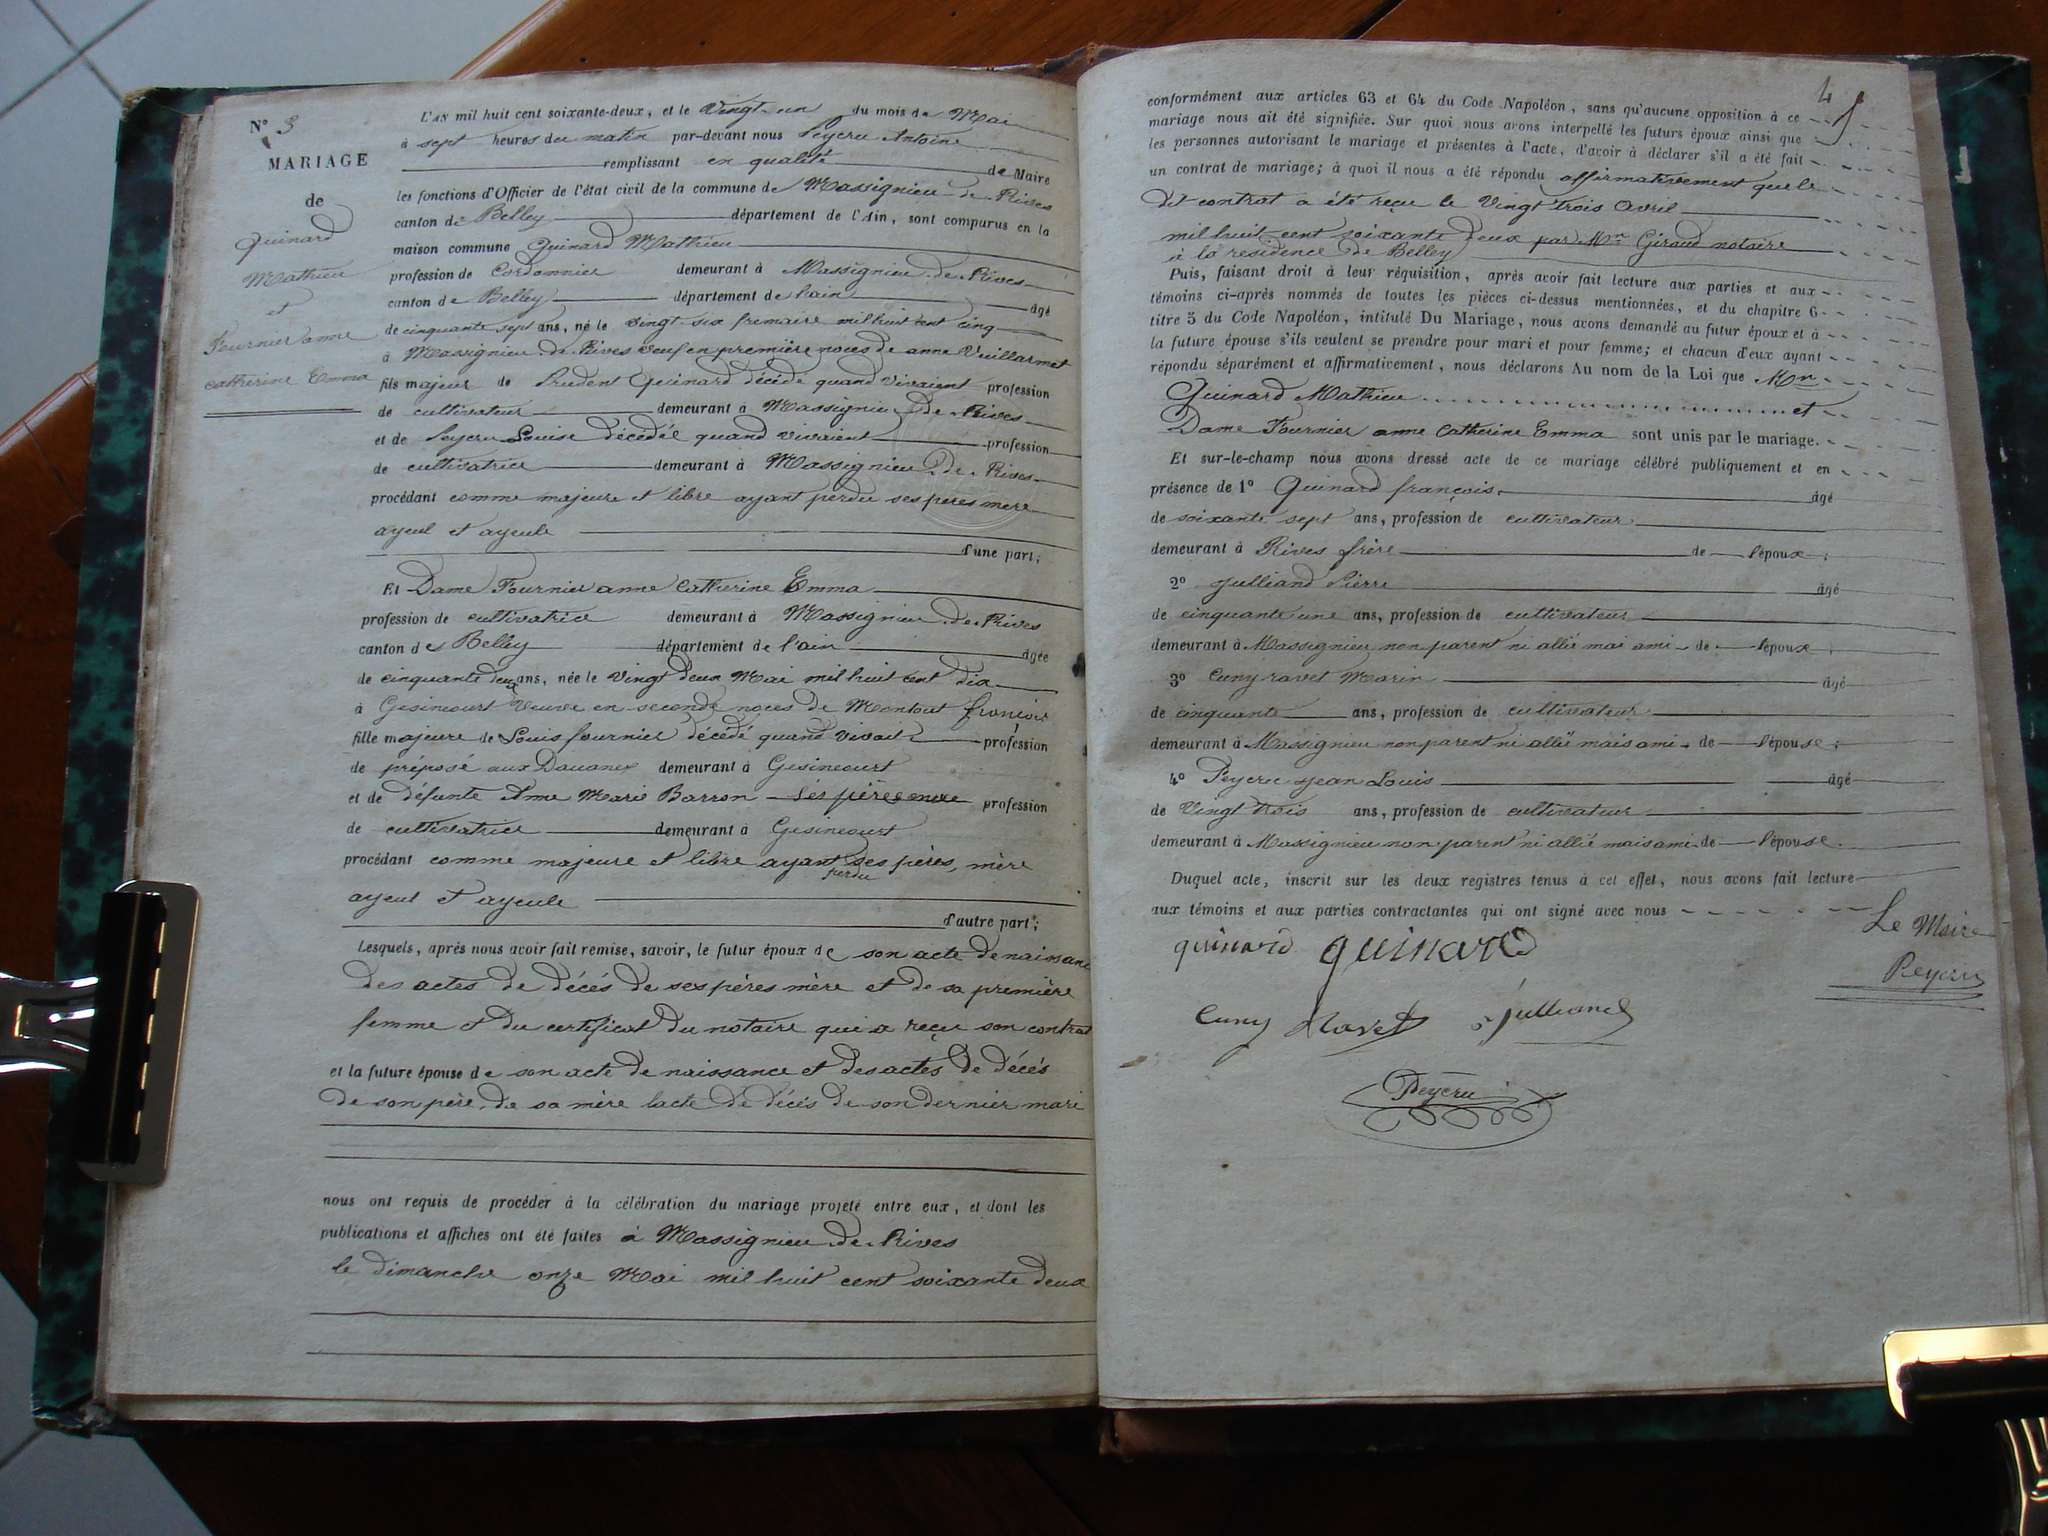 N° 3
MARIAGE
de
Quinard
Mathieu
et
Fournier anne
catherine Emma
L'AN mil huit cent soixante-deux, et le Vingt-un du mois de Mai
à sept heures du matin par-devant nous Peycru Antoine
remplissant en qualité de Maire
les fonctions d'Officier de l'état civil de la commune de Massignieu de Rives
canton de Belley département de l'Ain, sont comparus en la
maison commune Quinard Mathieu
profession de Cordonnier demeurant à Massignieu de Rives
canton de Belley département de l'ain âgé
de cinquante sept ans, né le vingt six frimaire mil huit cent cinq
à Massignieu de Rives veuf en première noces de anne Vuillarmet
fils majeur de Prudent Quinard décédé quand vivaient profession
de cultivateur demeurant à Massignieu de Rives
et de Peycru Louise décédée quand vivaient profession
de cultivatrice demeurant à Massignieu de Rives
procédant comme majeure et libre ayant perdu ses peres mere
ayeul et ayeule
d'une part;
Et Dame Fournier anne Catherine Emma
profession de cultivatrice demeurant à Massignieu de Rives
canton de Belley département de l'ain âgée
de cinquante deux ans, née le Vingt deux Mai mil huit cent dix
à Gesincourt Veuve en seconde noces de Montout françois
fille majeure de Louis fournier décédé quand vivait profession
de préposé aux Douanes demeurant à Gesincourt
et de défunte Anne Marie Barron profession
de cultivatrice demeurant à Gesincourt
procédant comme majeure et libre ayant perdu ses pères, mère
ayeul et ayeule
d'autre part;
Lesquels, après nous avoir fait remise, savoir, le futur époux de son acte de naissance
des actes de décés de ses pères mère et de sa première
femme et du certificat du notaire qui a reçu son contrat
et la future épouse de son acte de naissance et des actes de décés
de son père, de sa mère lacte de décés de son dernier mari
nous ont requis de procéder à la célébration du mariage projeté entre eux, et dont les
publications et affiches ont été faites à Massignieu de Rives
le dimanche onze Mai mil huit cent soixante deux
4
conformément aux articles 63 et 64 du Code Napoléon, sans qu'aucune opposition à ce
mariage nous ait été signifiée. Sur quoi nous avons interpellé les futurs époux ainsi que
les personnes autorisant le mariage et présentes à l'acte, d'avoir à déclarer s'il a été fait
un contrat de mariage; à quoi il nous a été répondu affirmativement que le
dit contrat a été reçu le Vingt trois Avril
mil huit cent soixante deux par Mre Giraud notaire
à la residence de Belley
Puis, faisant droit à leur réquisition, après avoir fait lecture aux parties et aux
témoins ci-après nommés de toutes les pièces ci-dessus mentionnées, et du chapitre 6
titre 5 du Code Napoléon, intitulé Du Mariage, nous avons demandé au futur époux et à
la future épouse s'ils veulent se prendre pour mari et pour femme; et chacun d'eux ayant
répondu séparément et affirmativement, nous déclarons Au nom de la Loi que Mr
Quinard Mathieu et
Dame Fournier anne Catherine Emma sont unis par le mariage.
Et sur-le-champ nous avons dressé acte de ce mariage célébré publiquement et en
présence de 1° Quinard françois âgé
de soixante sept ans, profession de cultivateur
demeurant à Rives frère de l'époux;
2° Julliand Pierre âgé
de cinquante une ans, profession de cultivateur
demeurant à Massignieu non parent ni allié mai ami de l'époux;
3° Cuny ravet Marin âgé
de cinquante ans, profession de cultivateur
demeurant à Massignieu non parent ni allié mais ami de l'épouse;
4° Peycru Jean Louis âgé
de Vingt trois ans, profession de cultivateur
demeurant à Massignieu non parent ni allié mais ami de l'épouse.
Duquel acte, inscrit sur les deux registres tenus à cet effet, nous avons fait lecture
aux témoins et aux parties contractantes qui ont signé avec nous
Le Maire
quinard quinard
Peycru
Cuny Ravet Julliand
Peycru